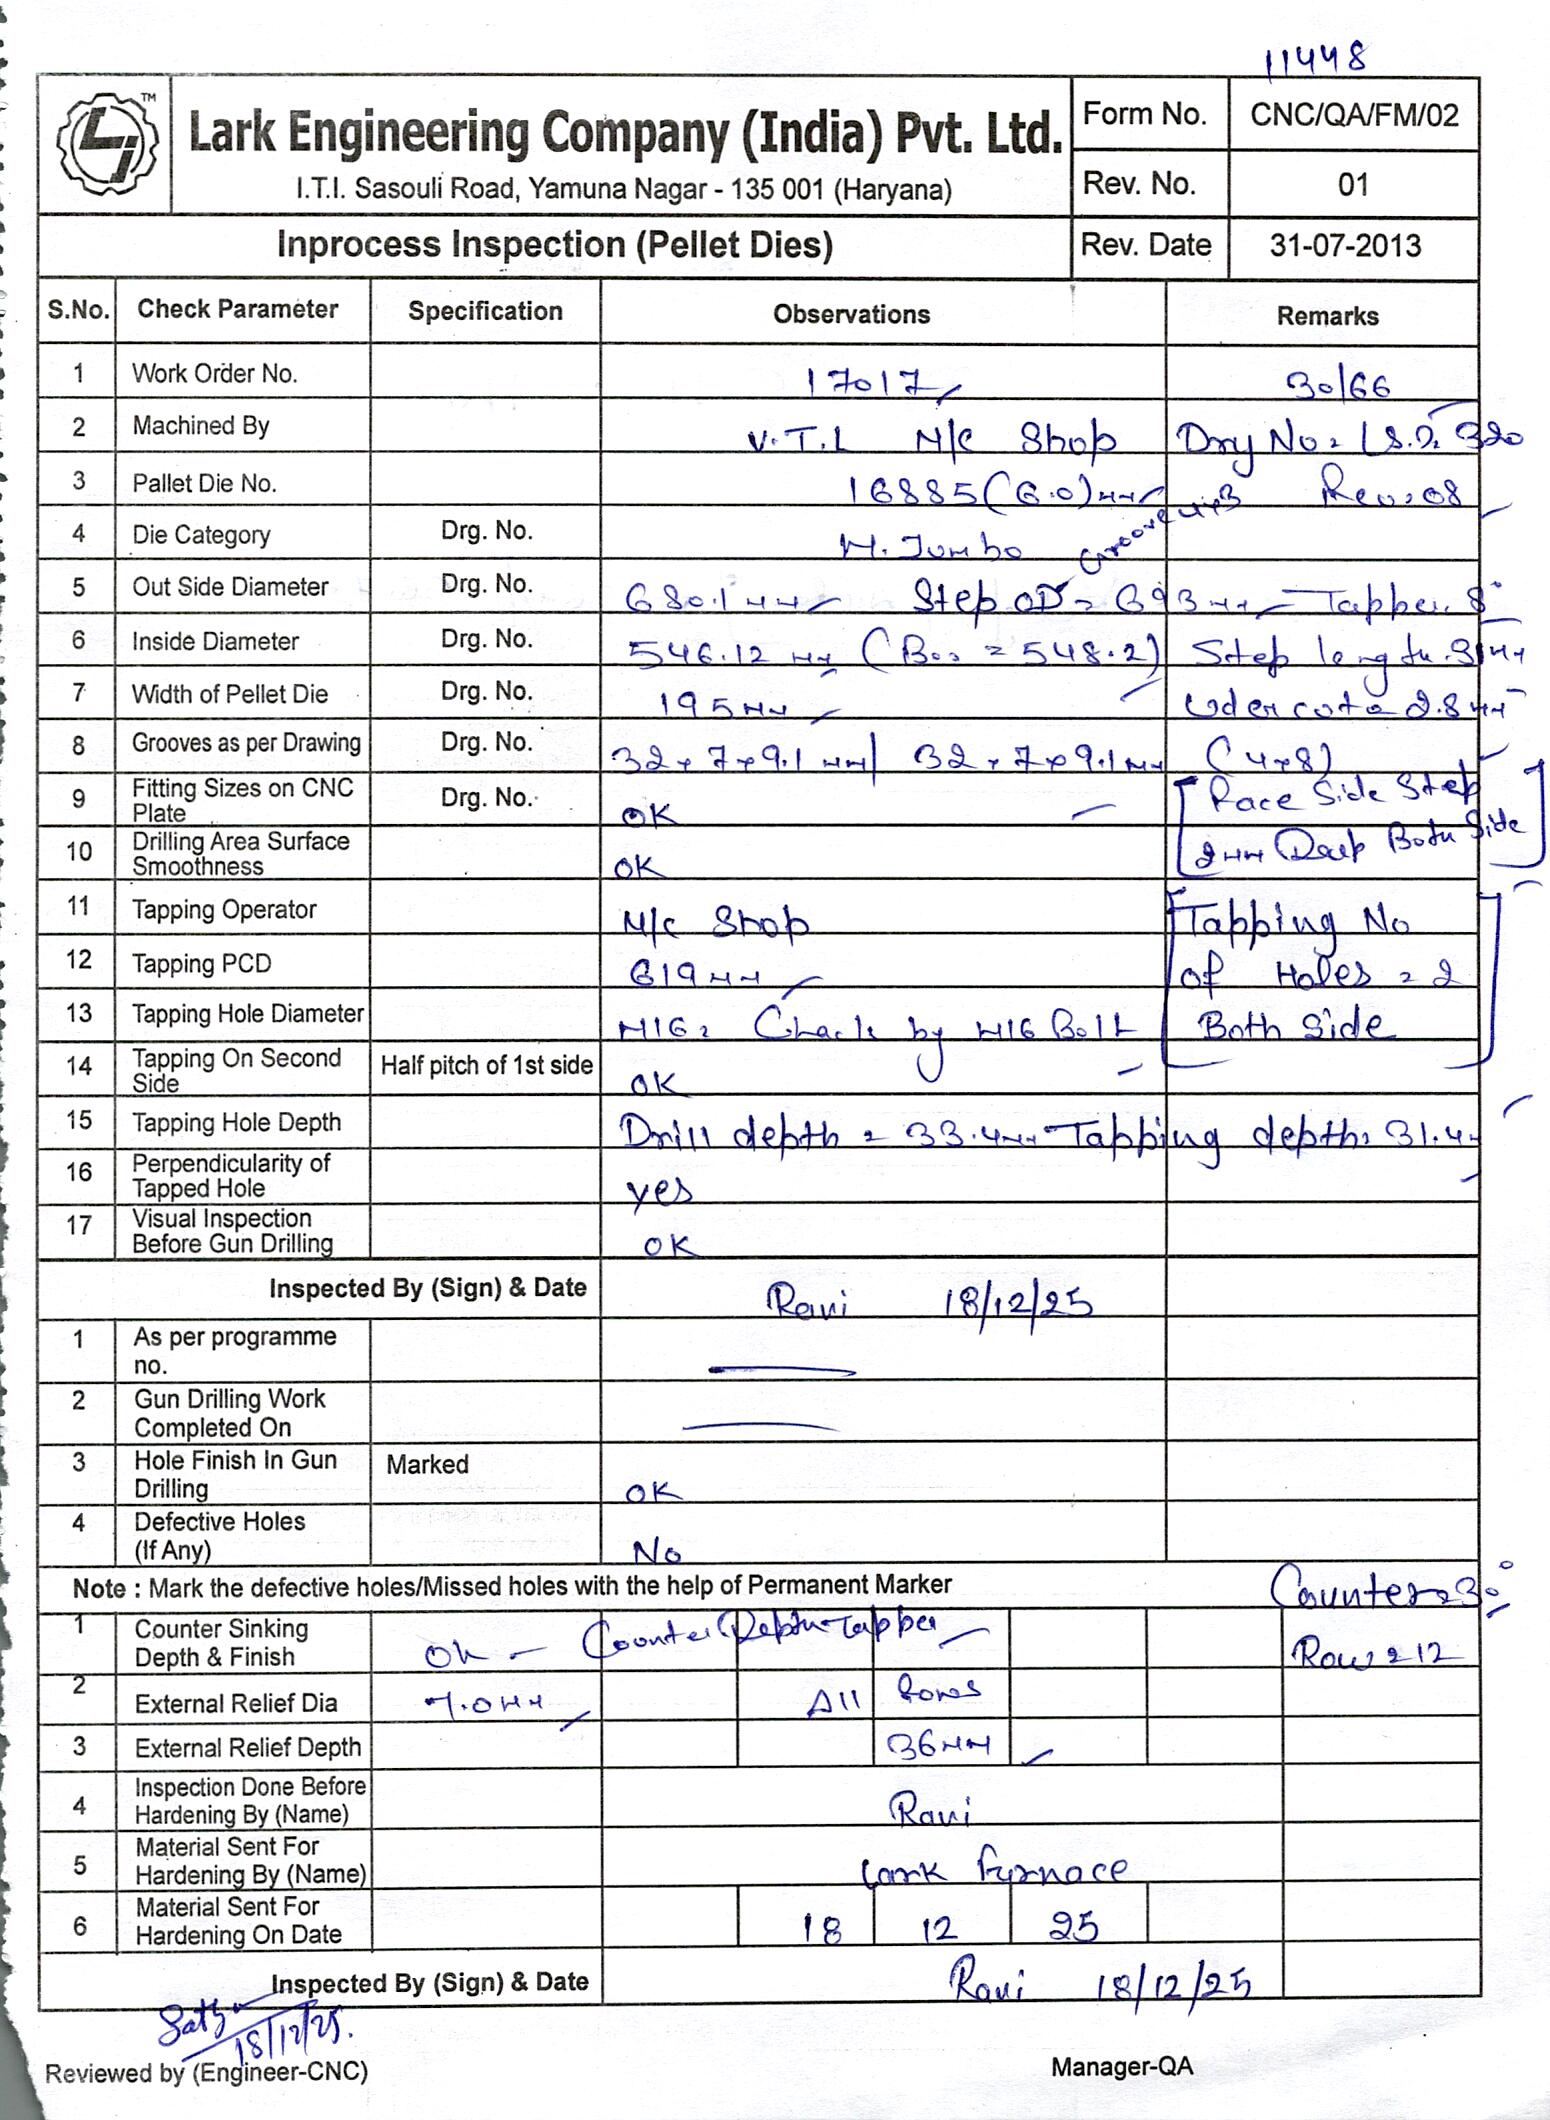 11448
TM
Lark Engineering Company (India) Pvt. Ltd.
I.T.I. Sasouli Road, Yamuna Nagar - 135 001 (Haryana)
Form No. CNC/QA/FM/02
Rev. No. 01
Inprocess Inspection (Pellet Dies) Rev. Date 31-07-2013
S.No. Check Parameter Specification Observations Remarks
1 Work Order No. 17017 30/66
2 Machined By V.T.L M/C Shop Dry No = 320
3 Pallet Die No. 16885 (6.0) mm Rev = 08
4 Die Category Drg. No. M. Jumbo Groove 4x3
5 Out Side Diameter Drg. No. 680.1 mm Step OD = 693 mm Tapper 8°
6 Inside Diameter Drg. No. 546.12 mm ( = 548.2) Step length
7 Width of Pellet Die Drg. No. 195 mm 2.8 mm
8 Grooves as per Drawing Drg. No. 32 x 7 x 9.1 mm | 32 x 7 x 9.1 mm (4x8)
9 Fitting Sizes on CNC Plate Drg. No. OK Face Side Step
10 Drilling Area Surface Smoothness OK 2mm Deep Both Side
11 Tapping Operator M/C Shop Tapping No
12 Tapping PCD 619 mm of Holes = 2
13 Tapping Hole Diameter M16 = Chack by M16 Bolt Both Side
14 Tapping On Second Side Half pitch of 1st side OK
15 Tapping Hole Depth Drill depth = 33.4mm Tapping depth = 31.4
16 Perpendicularity of Tapped Hole yes
17 Visual Inspection Before Gun Drilling OK
Inspected By (Sign) & Date Ravi 18/12/25
1 As per programme no.
2 Gun Drilling Work Completed On
3 Hole Finish In Gun Drilling Marked OK
4 Defective Holes (If Any) No
Note : Mark the defective holes/Missed holes with the help of Permanent Marker Counter = 30°
1 Counter Sinking Depth & Finish OK - Counter Depth Tapper Row = 12
2 External Relief Dia 7.0 mm All Rows
3 External Relief Depth 36 mm
4 Inspection Done Before Hardening By (Name) Ravi
5 Material Sent For Hardening By (Name) Lark Furnace
6 Material Sent For Hardening On Date 18 12 25
Inspected By (Sign) & Date Ravi 18/12/25
18/12/25.
Reviewed by (Engineer-CNC) Manager-QA